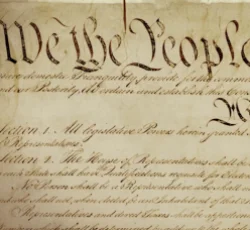 We the People
domestic Tranquility, provide for the common
and our Posterity, do ordain and establish this Cons
Section. 1. All legislative Powers herein granted
Representatives.
Section. 2. The House of Representatives shall
each State shall have Qualifications requisite for Elector
No Person shall be a Representative who shall
and who shall not, when elected, be an Inhabitant of that
Representatives and direct Taxes shall be